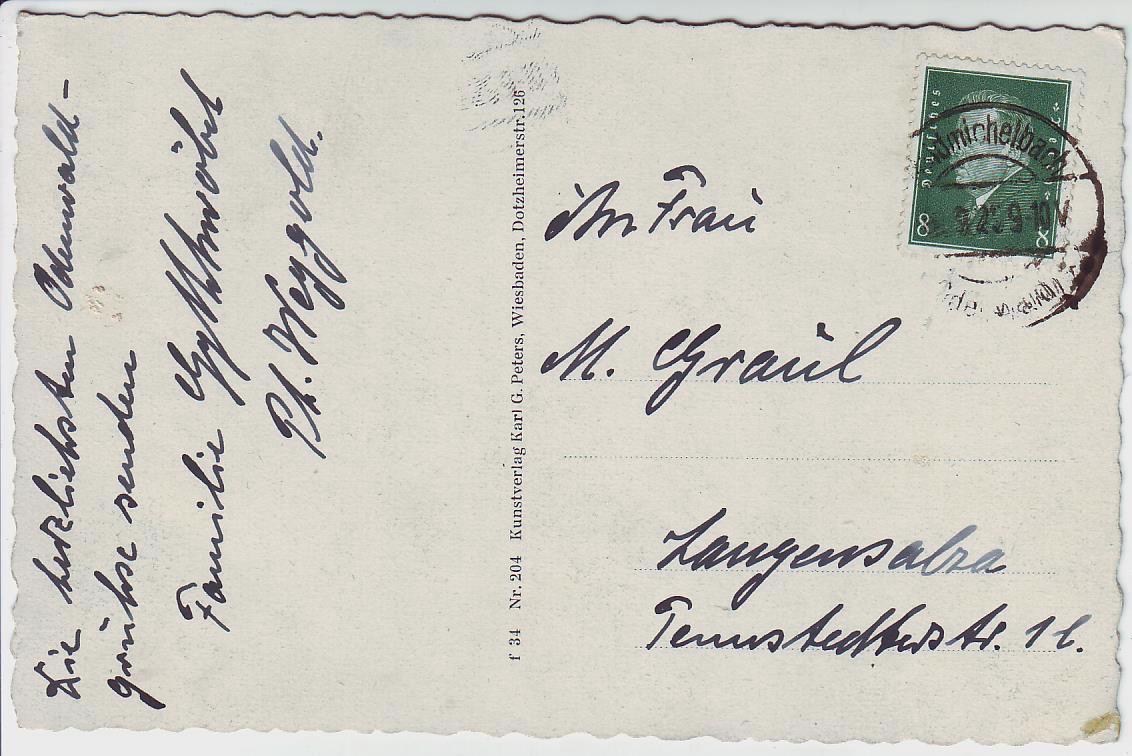 Die herzlichsten Odenwald-
grühse senden
Familie
Ph. Weygold.
f 34 Nr. 204 Kunstverlag Karl G. Peters, Wiesbaden, Dotzheimerstr. 126
Deutsches Reich
8 8
An Frau
M. Graul
Langensalza
Tennstedterstr. 1